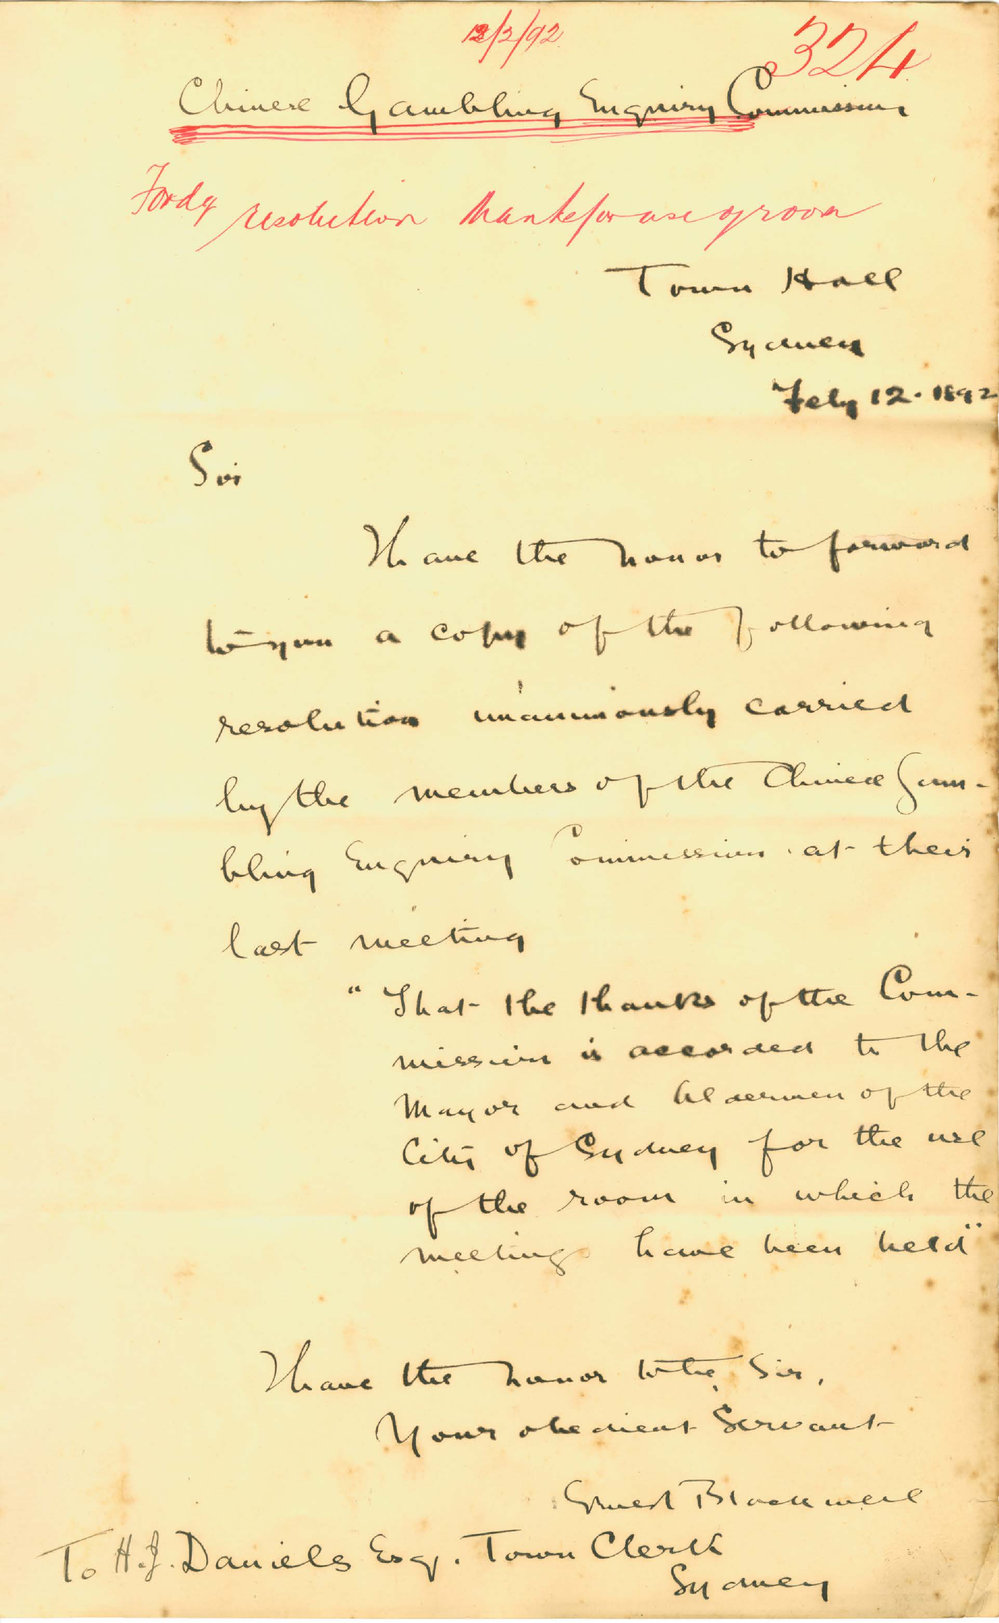 12/2/92
324
Chinese Gambling Enquiry Commission
Fordg resolution thanks for use of room
Town Hall
Sydney
Feby 12. 1892
Sir
I have the honor to forward
to you a copy of the following
resolution unanimously carried
by the members of the Chinese Gam-
bling Enquiry Commission at their
last meeting
"That the thanks of the Com-
mission is accorded to the
Mayor and Aldermen of the
City of Sydney for the use
of the room in which the
meetings have been held"
I have the honor to be, Sir,
Your obedient Servant
Ernest Blackwell
To H.J. Daniels Esq. Town Clerk
Sydney